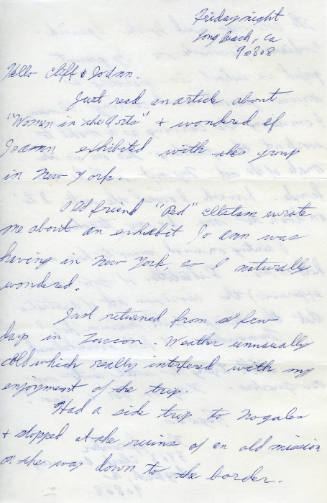 Friday night
Long Beach, Ca
90808
Hello Cliff & Jo Ann.
Just read an article about
"Women in the Arts" & wondered if
Joann exhibited with the group
in New York.
Old friend "Red" wrote
me about an exhibit Jo Ann was
having in New York, so I naturally
wondered.
Just returned from a few
days in Tucson. Weather unusually
cold which really interfered with my
enjoyment of the trip.
Had a side trip to Nogales
& stopped at the ruins of an old mission
on the way down to the border.